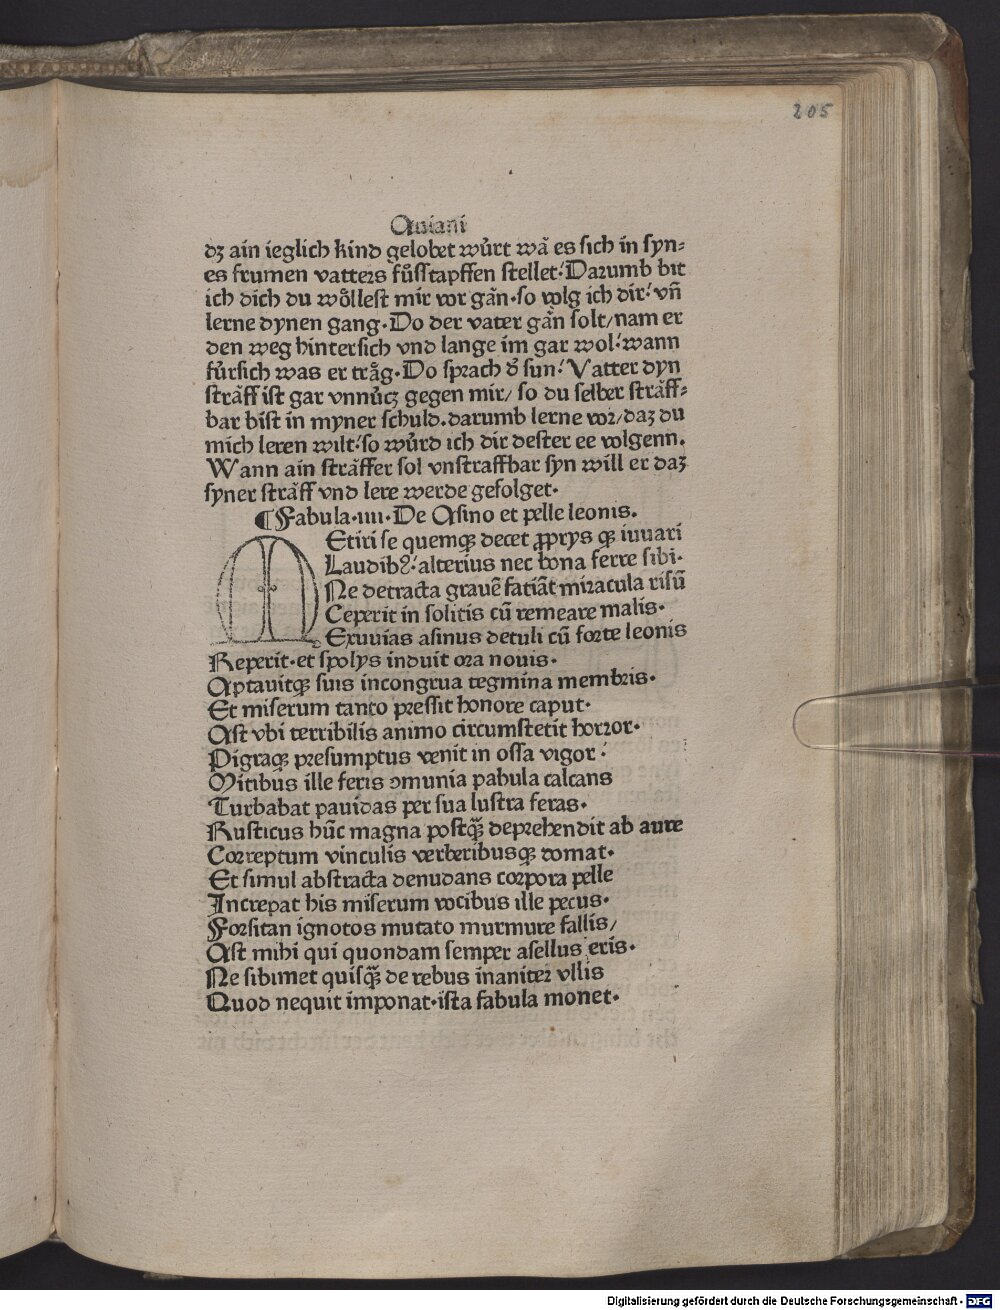 205
Auiani
dʒ ain ieglich kind gelobet wuͤrt wā es sich in syn⸗
es frumen vatters fuͤsstapffen stellet. Darumb bit
ich dich du woͤllest mir vor gān·so volg ich dir. vn̄
lerne dynen gang·Do der vater gān solt/nam er
den weg hintersich vnd lange im gar wol. wann
fuͤrsich was er traͤg·Do sprach dʼ sun. Vatter dyn
straͤff ist gar vnnuͤcz gegen mir/ so du selber straͤff⸗
bar bist in myner schuld.darumb lerne vor/daz du
mich leren wilt.so wuͤrd ich dir dester ee volgenn.
Wann ain straͤffer sol vnstraffbar syn will er daz
syner straͤff vnd lere werde gefolget·
¶Fabula·iiii·De Asino et pelle leonis.
MEtiri se quemqꝫ decet ꝓprys qꝫ iuuari
Laudibꝰ. alterius nec bona ferre sibi·
Ne detracta grauē fatiāt miracula risū
Ceperit in solitis cū remeare malis·
Exuuias asinus detuli cū forte leonis
Reperit·et spolys induit ora nouis·
Aptauitqꝫ suis incongrua tegmina membris·
Et miserum tanto pressit honore caput·
Ast vbi terribilis animo circumstetit horror·
Pigraqꝫ presumptus venit in ossa vigor.
Mitibus ille feris ↄmunia pabula calcans
Turbabat pauidas per sua lustra feras·
Rusticus hūc magna postqꝫ̄ deprehendit ab aure
Correptum vinculis verberibusqꝫ domat·
Et simul abstracta denudans corpora pelle
Increpat his miserum vocibus ille pecus·
Forsitan ignotos mutato murmure fallis/
Ast mihi qui quondam semper asellus eris·
Ne sibimet quisqꝫ̄ de rebus inaniter vllis
Quod nequit imponat·ista fabula monet·
Digitalisierung gefördert durch die Deutsche Forschungsgemeinschaft - DFG